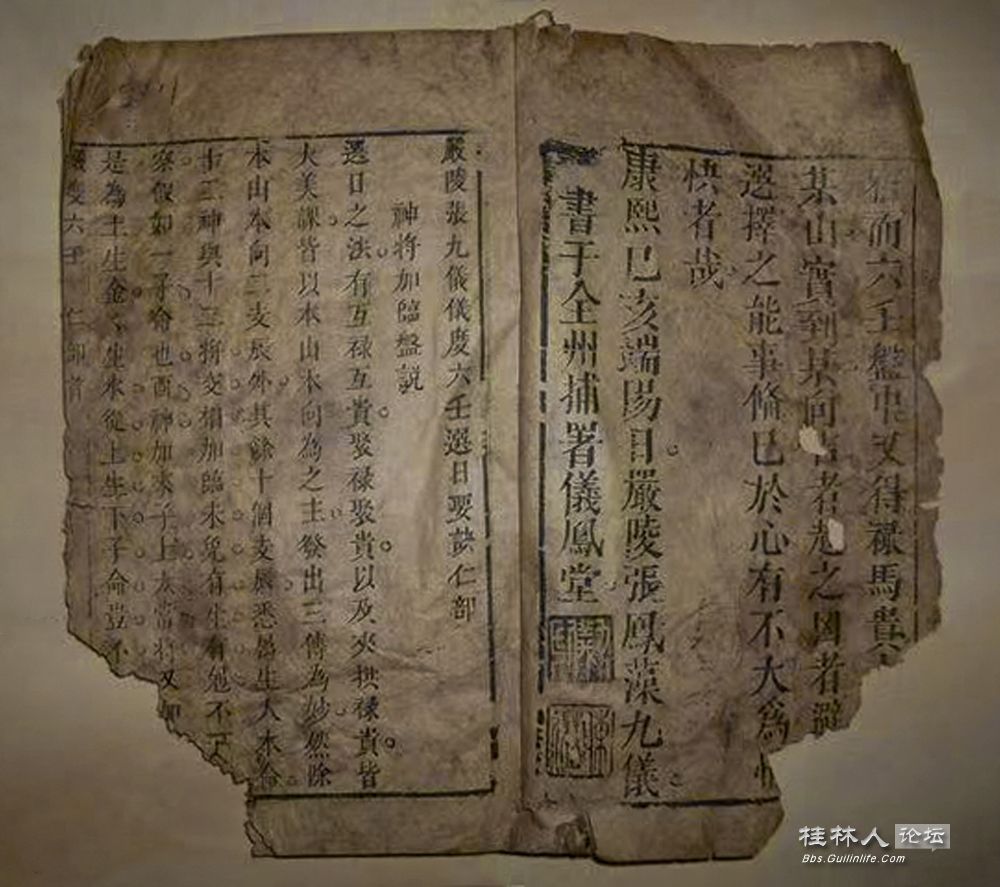 而六壬盤中又得祿馬貴
某山實到某向吉者趨之凶者避
選擇之能事俻已於心有不大為
快者哉
康熙己亥端陽日嚴陵張鳳藻九儀
書于全州捕署儀鳳堂
嚴陵張九儀儀度六壬選日要訣仁部
神將加臨盤説
選日之法有互禄互貴聚禄聚貴以及夾拱祿貴皆
大美課皆以本山本向為之主發出三傳為妙然除
本山本向二支辰外其餘十個支辰悉屬生人本命
十二神與十二將交相加臨未免有生有尅不
察假如一子命也酉神加來子上太常將又
是為土生金金生水從上生下子命豈不
儀度六壬 仁部首
桂林人论坛
Bbs.Guilinlife.com